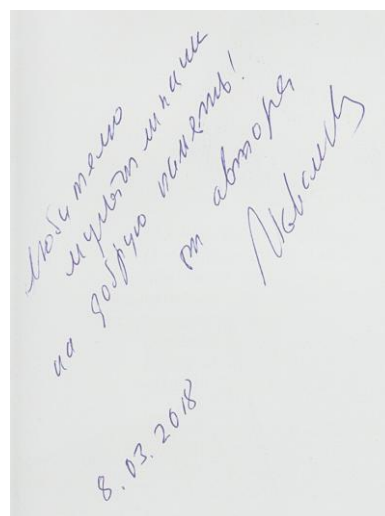 Любителю
мультипликации
на добрую память!
от автора
8.03.2018